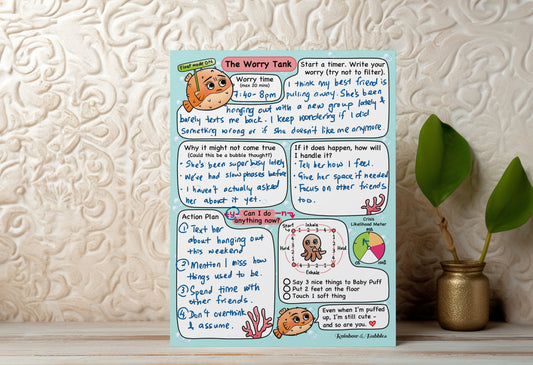 Float mode ON
The Worry Tank
Worry time
(max 20 mins)
7:40- 8pm
Start a timer. Write your
worry (try not to filter).
I think my best friend is
pulling away. She's been
hanging out with a new group lately &
barely texts me back. I keep wondering if I did
something wrong or if she doesn't like me anymore
Why it might not come true
(Could this be a bubble thought?)
• She's been super busy lately
• We've had slow phases before
• I haven't actually asked
her about it yet.
If it does happen, how will
I handle it?
• Tell her how I feel.
• Give her space if needed
• Focus on other friends
too.
Action Plan
1 Text her
about hanging out
this weekend
2 Mention I miss how
things used to be.
3 Spend time with
other friends.
4 Don't overthink
& assume.
y Can I do n
anything now?
Start
Inhale
1 2 3 4
Hold
Hold
4 3 2 1
Exhale
Crisis
Likelihood Meter
Say 3 nice things to Baby Puff
Put 2 feet on the floor
Touch 1 soft thing
Even when I'm puffed
up, I'm still cute -
and so are you.
Rainbow & Bubbles